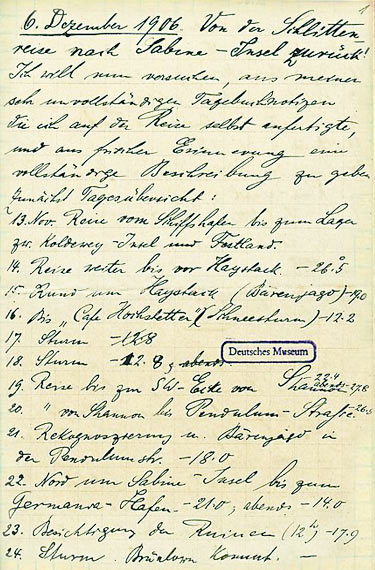 1
6. Dezember 1906. Von der Schlitten
reise nach Sabine-Insel zurück!
Ich will nun versuchen, aus meinen
sehr unvollständigen Tagebuchnotizen
die ich auf der Reise selbst anfertigte,
und aus frischer Erinnerung eine
vollständige Beschreibung zu geben
Zunächst Tagesübersicht:
13. Nov. Reise vom Schiffshafen bis zum Lager
zw. Koldewey-Insel und Festland.
14. Reise weiter bis vor Haystack. -26.5
15. Rund um Haystack (Bärenjagd) -19.0
16. Bis "Cape Hochstetter" (Schneesturm) -12.2
17. Sturm -12.8
18. Sturm -12.8; abends
Deutsches Museum
19. Reise bis zur SW-Ecke von Shannon 22.4 abends -27.8
20. " von Shannon bis Pendulum-Straße
21. Rekognoszierung u. Bärenjagd in
der Pendulumstr. -18.0
22. Nord um Sabine-Insel bis zum
Germania-Hafen -21.0; abends -14.0
23. Besichtigung der Ruinen (12h) -17.9
24. Sturm. Brönlund kommt. —